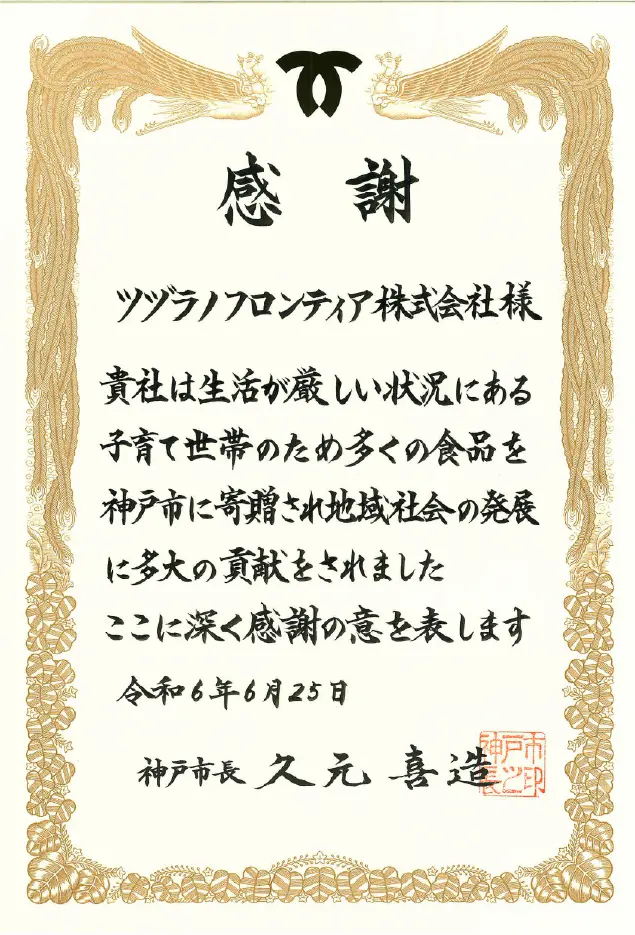 感 謝
ツヅラノフロンティア株式会社様
貴社は生活が厳しい状況にある
子育て世帯のため多くの食品を
神戸市に寄贈され地域社会の発展
に多大の貢献をされました
ここに深く感謝の意を表します
令和6年6月25日
神戸市長 久元 喜造
神戸市長之印